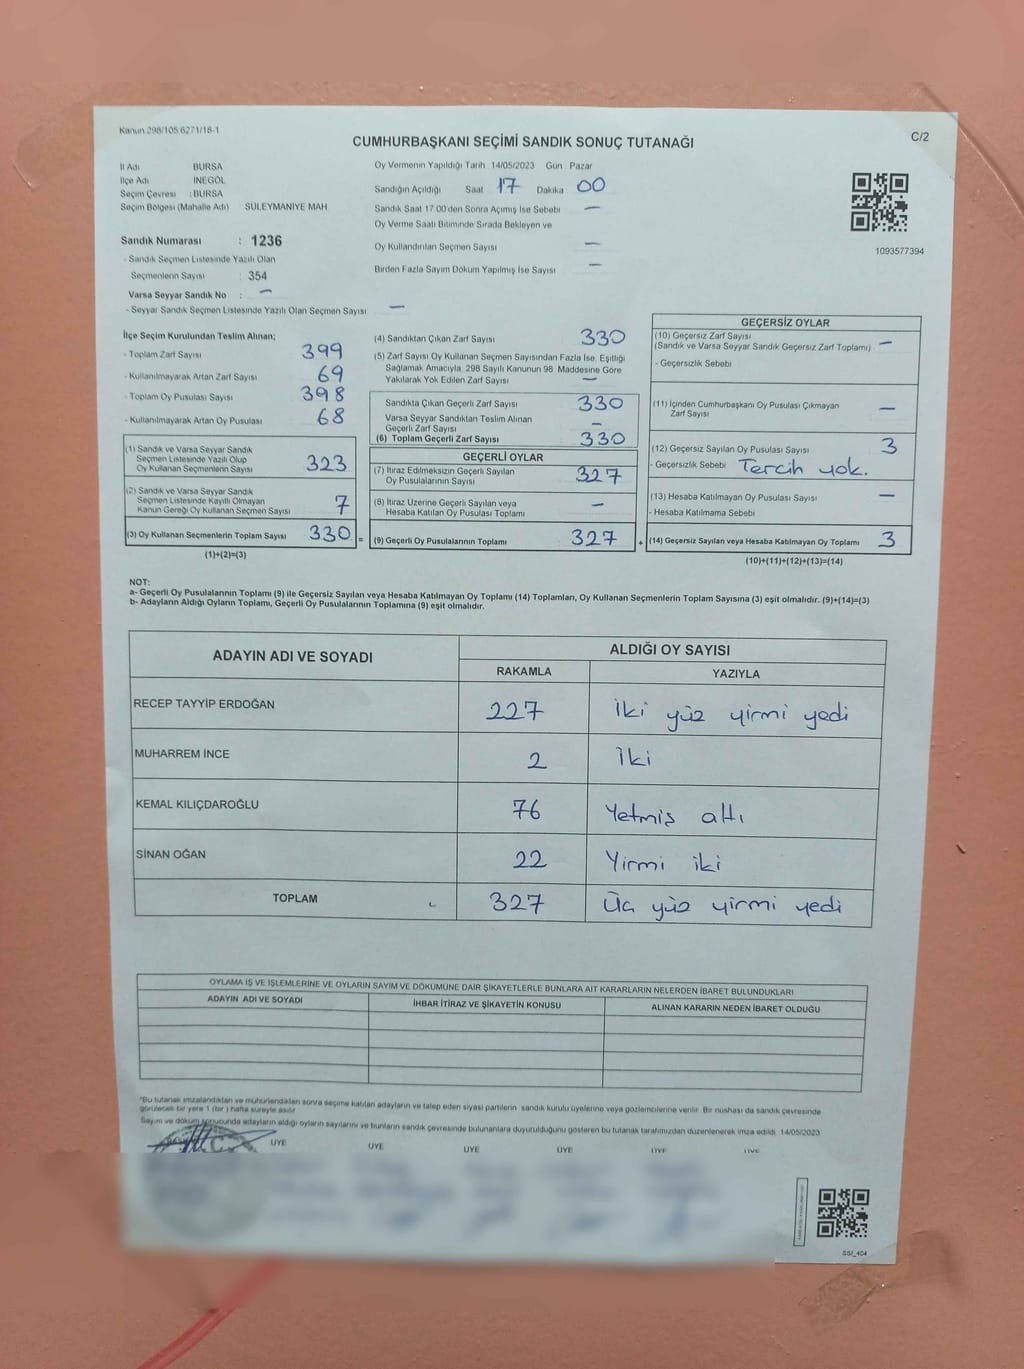 Kanun 298/105.6271/18-1
C/2
CUMHURBAŞKANI SEÇİMİ SANDIK SONUÇ TUTANAĞI
İl Adı BURSA
İlçe Adı İNEGÖL
Seçim Çevresi : BURSA
Seçim Bölgesi (Mahalle Adı) SÜLEYMANİYE MAH
Sandık Numarası : 1236
- Sandık Seçmen Listesinde Yazılı Olan
Seçmenlerin Sayısı : 354
Varsa Seyyar Sandık No : –
- Seyyar Sandık Seçmen Listesinde Yazılı Olan Seçmen Sayısı –
Oy Vermenin Yapıldığı Tarih 14/05/2023 Gün Pazar
Sandığın Açıldığı Saat 17 Dakika 00
Sandık Saat 17:00'den Sonra Açımış İse Sebebi –
Oy Verme Saati Bitiminde Sırada Bekleyen ve
Oy Kullandırılan Seçmen Sayısı –
Birden Fazla Sayım Döküm Yapılmış İse Sayısı –
1093577394
İlçe Seçim Kurulundan Teslim Alınan;
- Toplam Zarf Sayısı 399
- Kullanılmayarak Artan Zarf Sayısı 69
- Toplam Oy Pusulası Sayısı 398
- Kullanılmayarak Artan Oy Pusulası 68
(1) Sandık ve Varsa Seyyar Sandık
Seçmen Listesinde Yazılı Olup
Oy Kullanan Seçmenlerin Sayısı 323
(2) Sandık ve Varsa Seyyar Sandık
Seçmen Listesinde Kayıtlı Olmayan
Kanun Gereği Oy Kullanan Seçmen Sayısı 7
(3) Oy Kullanan Seçmenlerin Toplam Sayısı 330 =
(1)+(2)=(3)
(4) Sandıktan Çıkan Zarf Sayısı 330
(5) Zarf Sayısı Oy Kullanan Seçmen Sayısından Fazla İse, Eşitliği
Sağlamak Amacıyla, 298 Sayılı Kanunun 98. Maddesine Göre
Yakılarak Yok Edilen Zarf Sayısı –
Sandıkta Çıkan Geçerli Zarf Sayısı 330
Varsa Seyyar Sandıktan Teslim Alınan
Geçerli Zarf Sayısı –
(6) Toplam Geçerli Zarf Sayısı 330
GEÇERLİ OYLAR
(7) İtiraz Edilmeksizin Geçerli Sayılan
Oy Pusulalarının Sayısı 327
(8) İtiraz Üzerine Geçerli Sayılan veya
Hesaba Katılan Oy Pusulası Toplamı –
(9) Geçerli Oy Pusulalarının Toplamı 327 +
GEÇERSİZ OYLAR
(10) Geçersiz Zarf Sayısı
(Sandık ve Varsa Seyyar Sandık Geçersiz Zarf Toplamı) –
- Geçersizlik Sebebi
(11) İçinden Cumhurbaşkanı Oy Pusulası Çıkmayan
Zarf Sayısı –
(12) Geçersiz Sayılan Oy Pusulası Sayısı 3
- Geçersizlik Sebebi Tercih yok.
(13) Hesaba Katılmayan Oy Pusulası Sayısı –
- Hesaba Katılmama Sebebi
(14) Geçersiz Sayılan veya Hesaba Katılmayan Oy Toplamı 3
(10)+(11)+(12)+(13)=(14)
NOT:
a- Geçerli Oy Pusulalarının Toplamı (9) ile Geçersiz Sayılan veya Hesaba Katılmayan Oy Toplamı (14) Toplamları, Oy Kullanan Seçmenlerin Toplam Sayısına (3) eşit olmalıdır. (9)+(14)=(3)
b- Adayların Aldığı Oyların Toplamı, Geçerli Oy Pusulalarının Toplamına (9) eşit olmalıdır.
ADAYIN ADI VE SOYADI ALDIĞI OY SAYISI
RAKAMLA YAZIYLA
RECEP TAYYİP ERDOĞAN 227 İki yüz yirmi yedi
MUHARREM İNCE 2 İki
KEMAL KILIÇDAROĞLU 76 Yetmiş altı
SİNAN OĞAN 22 Yirmi iki
TOPLAM 327 Üç yüz yirmi yedi
OYLAMA İŞ VE İŞLEMLERİNE VE OYLARIN SAYIM VE DÖKÜMÜNE DAİR ŞİKAYETLERLE BUNLARA AİT KARARLARIN NELERDEN İBARET BULUNDUKLARI
ADAYIN ADI VE SOYADI İHBAR İTİRAZ VE ŞİKAYETİN KONUSU ALINAN KARARIN NEDEN İBARET OLDUĞU
*Bu tutanak imzalandıktan ve mühürlendikten sonra seçime katılan adayların ve talep eden siyasi partilerin sandık kurulu üyelerine veya gözlemcilerine verilir. Bir nüshası da sandık çevresinde
görülecek bir yere 1 (bir) hafta süreyle asılır
Sayım ve döküm sonucunda adayların aldığı oyların sayılarını ve bunların sandık çevresinde bulunanlara duyurulduğunu gösteren bu tutanak tarafımızdan düzenlenerek imza edildi. 14/05/2023
ÜYE ÜYE ÜYE ÜYE ÜYE ÜYE
SSİ_404